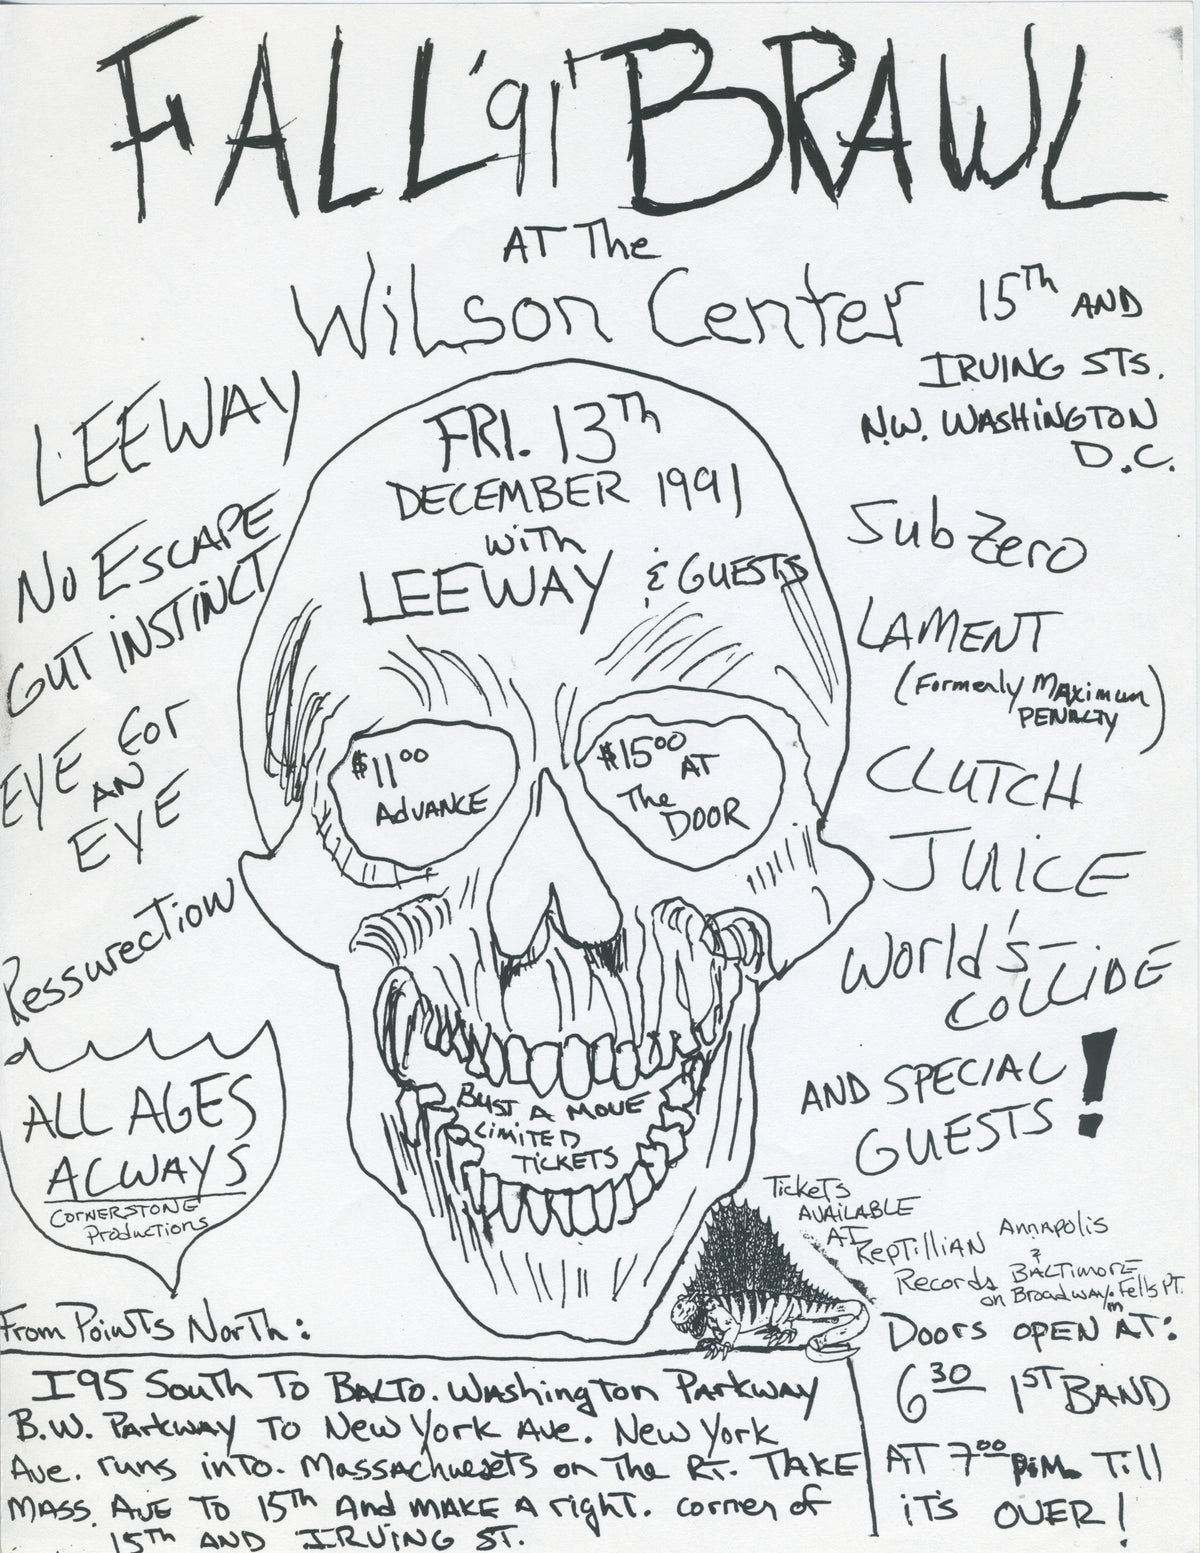 FALL '91' BRAWL
AT The
WiLson Center
15Th AND
IRVING STS.
N.W. WASHiNGTON
D.C.
LEEWAY
No ESCAPE
GUT iNSTiNCT
EYE for
AN
EYE
Ressurection
FRI. 13Th
DECEMBER 1991
with
LEEWAY & GUESTS
$11.00
AdVANCE
$15.00 AT
The
DOOR
BUST A MOVE
LiMiTED
TiCKETS
Sub Zero
LAMENT
(Formerly MAximum
PENALTY)
CLUTCH
JUiCE
World's-
COLLiDE
AND SPECiAL
GUESTS!
ALL AGES
ALWAYS
CORNERSTONE
Productions
Tickets
AVAILABLE
AT
RepTillian
Records
Annapolis
&
BALTiMORE
on Broadway in Fells PT.
From Points North:
I95 South To BALTO. Washington Parkway
B.W. Parkway To New York Ave. New York
Ave. runs into. Massachuesets on the RT. TAKE
MASS. AVE TO 15Th And MAKE A right. corner of
15Th AND IRVING ST.
Doors OPEN AT:
6 30 1ST BAND
AT 7 00 P.M. Till
iTS OVER!